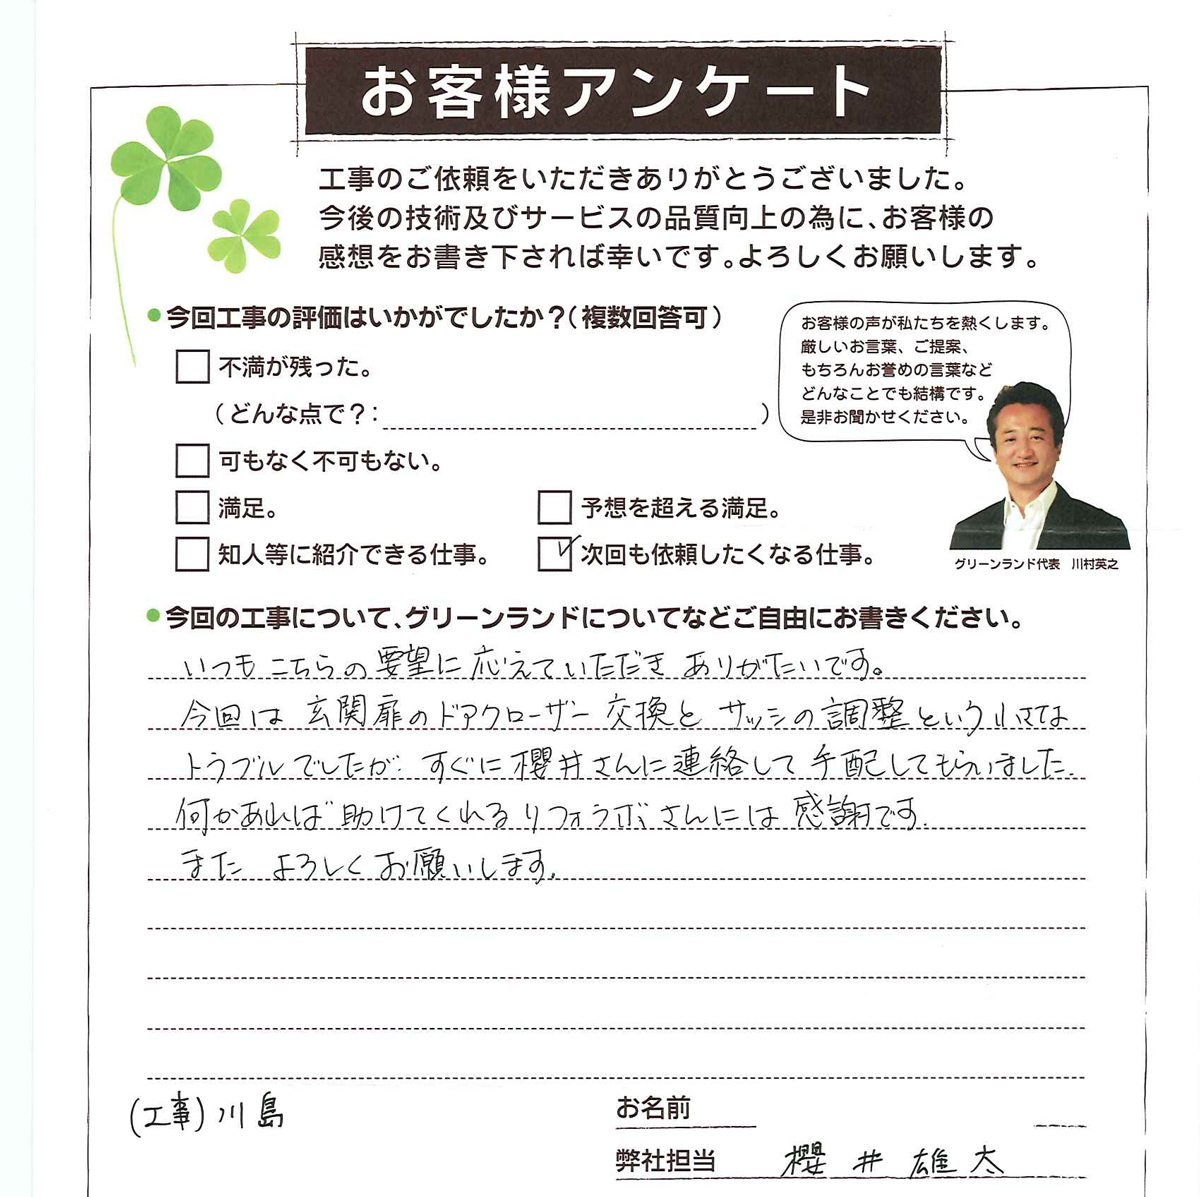 お客様アンケート
工事のご依頼をいただきありがとうございました。
今後の技術及びサービスの品質向上の為に、お客様の
感想をお書き下されば幸いです。よろしくお願いします。
今回工事の評価はいかがでしたか？（複数回答可）
不満が残った。
（どんな点で？：　　　）
可もなく不可もない。
満足。
予想を超える満足。
知人等に紹介できる仕事。
次回も依頼したくなる仕事。
お客様の声が私たちを熱くします。
厳しいお言葉、ご提案、
もちろんお誉めの言葉など
どんなことでも結構です。
是非お聞かせください。
グリーンランド代表　川村英之
今回の工事について、グリーンランドについてなどご自由にお書きください。
いつもこちらの要望に応えていただきありがたいです。
今回は玄関扉のドアクローザー交換とサッシの調整という小さな
トラブルでしたが、すぐに櫻井さんに連絡して手配してもらいました.
何かあれば助けてくれるリフォラボさんには感謝です.
また よろしくお願いします.
(工事) 川島
お名前
弊社担当 櫻井雄太